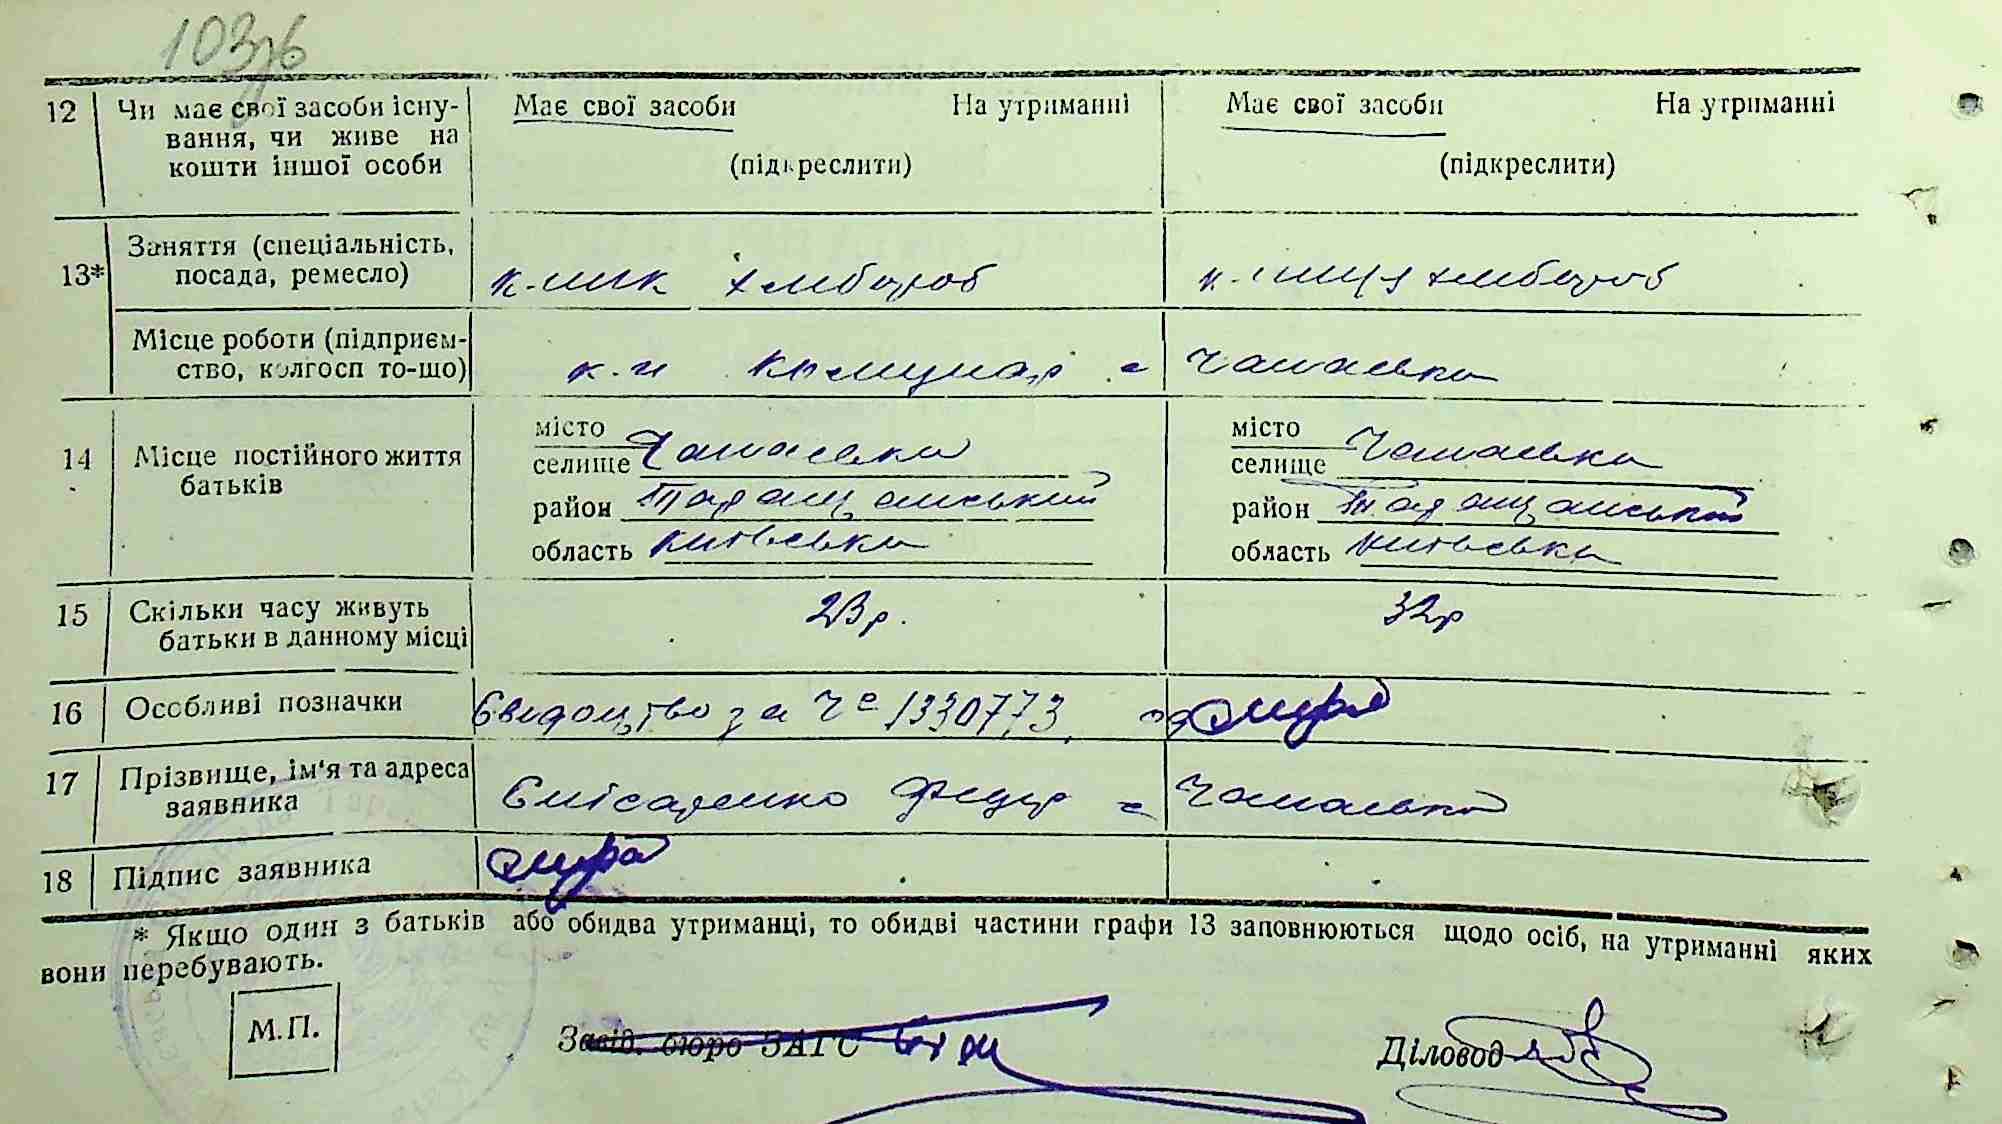 103зв
12 Чи має свої засоби існу- Має свої засоби На утриманні Має свої засоби На утриманні
вання, чи живе на
кошти іншої особи (підкреслити) (підкреслити)
Заняття (спеціальність,
13* посада, ремесло) к-ник хлібороб к-ниця хлібороб
Місце роботи (підприєм-
ство, колгосп то-що) к-п с Чапаєвка
місто місто
14 Місце постійного життя селище Чапаєвка селище Чапаєвка
батьків район Таращанський район Таращанський
область київська область київська
15 Скільки часу живуть 23 р. 32 р
батьки в данному місці
16 Особливі позначки Свидоцтво за Чс 1330773
17 Прізвище, ім'я та адреса
заявника Єлісаренко Федір с Чапаєвка
18 Підпис заявника
* Якщо один з батьків або обидва утриманці, то обидві частини графи 13 заповнюються щодо осіб, на утриманні яких
вони перебувають.
М.П. Завід. бюро ЗАГС Діловод